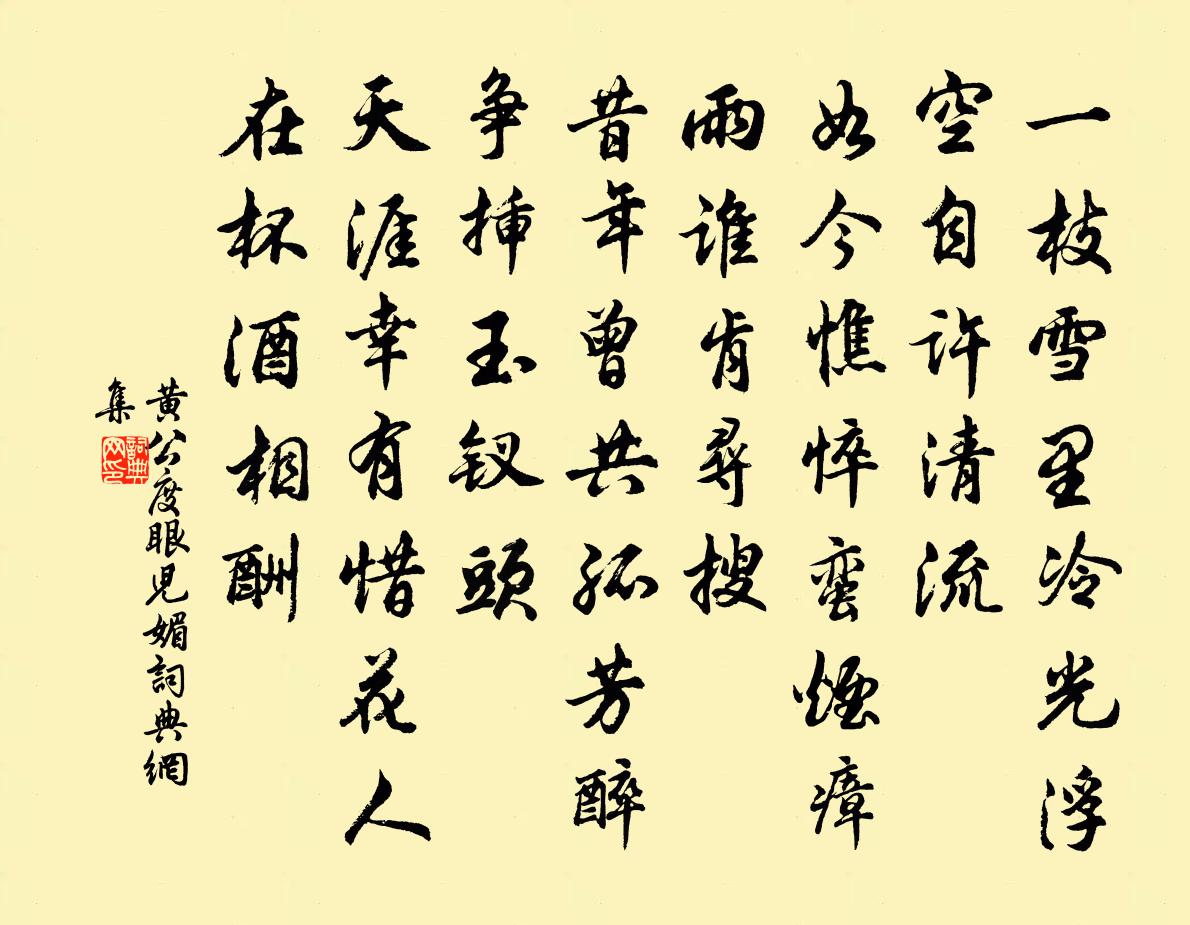 一枝雪里冷光浮
空自许清流
如今憔悴蛮煙瘴
雨谁肯尋搜
昔年曾共孤芳醉
争插玉钗頭
天涯幸有惜花人
在杯酒相酬
黄公度眼儿媚詞典網
集
詞典网印